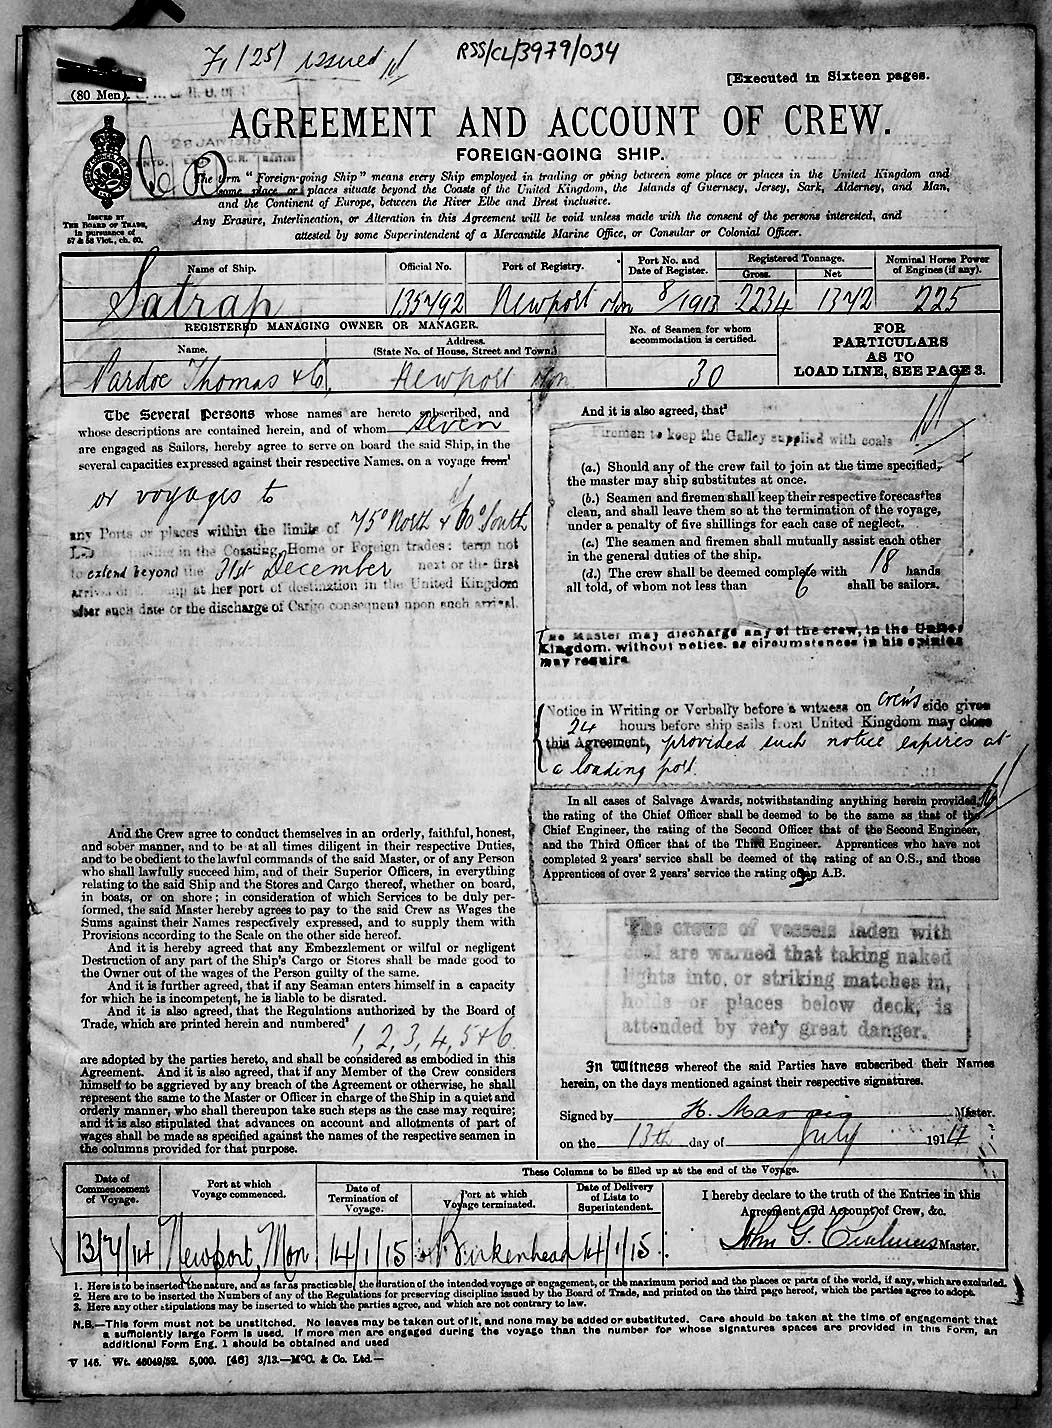 F, 1251 issued
RSS/CL/3979/034
[Executed in Sixteen pages.
(80 Men)
28 JAN 1915
AGREEMENT AND ACCOUNT OF CREW.
FOREIGN-GOING SHIP.
The term "Foreign-going Ship" means every Ship employed in trading or going between some place or places in the United Kingdom and
some place or places situate beyond the Coasts of the United Kingdom, the Islands of Guernsey, Jersey, Sark, Alderney, and Man,
and the Continent of Europe, between the River Elbe and Brest inclusive.
Any Erasure, Interlineation, or Alteration in this Agreement will be void unless made with the consent of the persons interested, and
attested by some Superintendent of a Mercantile Marine Office, or Consular or Colonial Officer.
ISSUED BY
THE BOARD OF TRADE,
in pursuance of
57 & 58 Vict., ch. 60.
Name of Ship. Official No. Port of Registry. Port No. and Date of Register. Registered Tonnage. Gross. Net Nominal Horse Power of Engines (if any).
Satrap 135492 Newport Mon 8/1913 2234 1372 225
REGISTERED MANAGING OWNER OR MANAGER.
Name. Address. (State No. of House, Street and Town.)
No. of Seamen for whom accommodation is certified.
FOR PARTICULARS AS TO LOAD LINE, SEE PAGE 3.
Pardoe Thomas & Co, Newport Mon 30
The Several Persons whose names are hereto subscribed, and
whose descriptions are contained herein, and of whom seven
are engaged as Sailors, hereby agree to serve on board the said Ship, in the
several capacities expressed against their respective Names, on a voyage from¹
or voyages to
any Ports or places within the limits of 75° North & 60° South
Lat trading in the Coasting, Home or Foreign trades: term not
to extend beyond the 31st December next or the first
arrival of ship at her port of destination in the United Kingdom
after such date or the discharge of Cargo consequent upon such arrival.
And the Crew agree to conduct themselves in an orderly, faithful, honest,
and sober manner, and to be at all times diligent in their respective Duties,
and to be obedient to the lawful commands of the said Master, or of any Person
who shall lawfully succeed him, and of their Superior Officers, in everything
relating to the said Ship and the Stores and Cargo thereof, whether on board,
in boats, or on shore; in consideration of which Services to be duly per-
formed, the said Master hereby agrees to pay to the said Crew as Wages the
Sums against their Names respectively expressed, and to supply them with
Provisions according to the Scale on the other side hereof.
And it is hereby agreed that any Embezzlement or wilful or negligent
Destruction of any part of the Ship's Cargo or Stores shall be made good to
the Owner out of the wages of the Person guilty of the same.
And it is further agreed, that if any Seaman enters himself in a capacity
for which he is incompetent, he is liable to be disrated.
And it is also agreed, that the Regulations authorized by the Board of
Trade, which are printed herein and numbered²
1, 2, 3, 4, 5 & 6.
are adopted by the parties hereto, and shall be considered as embodied in this
Agreement. And it is also agreed, that if any Member of the Crew considers
himself to be aggrieved by any breach of the Agreement or otherwise, he shall
represent the same to the Master or Officer in charge of the Ship in a quiet and
orderly manner, who shall thereupon take such steps as the case may require;
and it is also stipulated that advances on account and allotments of part of
wages shall be made as specified against the names of the respective seamen in
the columns provided for that purpose.
And it is also agreed, that³
Firemen to keep the Galley supplied with coals
(a.) Should any of the crew fail to join at the time specified,
the master may ship substitutes at once.
(b.) Seamen and firemen shall keep their respective forecastles
clean, and shall leave them so at the termination of the voyage,
under a penalty of five shillings for each case of neglect.
(c.) The seamen and firemen shall mutually assist each other
in the general duties of the ship.
(d.) The crew shall be deemed complete with 18 hands
all told, of whom not less than 6 shall be sailors.
The Master may discharge any of the crew, in the United
Kingdom, without notice, as circumstances in his opinion
may require
Notice in Writing or Verbally before a witness on crew's side given
24 hours before ship sails from United Kingdom may close
this Agreement, provided such notice expires at
a loading port.
In all cases of Salvage Awards, notwithstanding anything herein provided,
the rating of the Chief Officer shall be deemed to be the same as that of the
Chief Engineer, the rating of the Second Officer that of the Second Engineer,
and the Third Officer that of the Third Engineer. Apprentices who have not
completed 2 years' service shall be deemed of the rating of an O.S., and those
Apprentices of over 2 years' service the rating of an A.B.
The crews of vessels laden with
coal are warned that taking naked
lights into, or striking matches in,
holds or places below deck, is
attended by very great danger.
In Witness whereof the said Parties have subscribed their Names
herein, on the days mentioned against their respective signatures.
Signed by H. Master.
on the 13th day of July 1914
These Columns to be filled up at the end of the Voyage.
Date of Commencement of Voyage. Port at which Voyage commenced. Date of Termination of Voyage. Port at which Voyage terminated. Date of Delivery of Lists to Superintendent.
I hereby declare to the truth of the Entries in this
Agreement and Account of Crew, &c.
13/7/14 Newport, Mon 14/1/15 Birkenhead 14/1/15 John G. Chalmers Master.
1. Here is to be inserted the nature, and as far as practicable, the duration of the intended voyage or engagement, or the maximum period and the places or parts of the world, if any, which are excluded.
2. Here are to be inserted the Numbers of any of the Regulations for preserving discipline issued by the Board of Trade, and printed on the third page hereof, which the parties agree to adopt.
3. Here any other stipulations may be inserted to which the parties agree, and which are not contrary to law.
N.B.—This form must not be unstitched. No leaves may be taken out of it, and none may be added or substituted. Care should be taken at the time of engagement that
a sufficiently large Form is used. If more men are engaged during the voyage than the number for whose signatures spaces are provided in this Form, an
additional Form Eng. 1 should be obtained and used
V 146. Wt. 46049/52. 5,000. [46] 3/13.—McC. & Co. Ltd.—